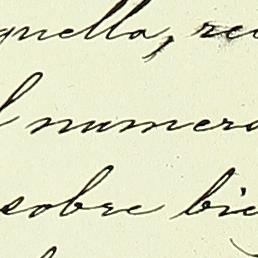 quella, re
l numero
sobre bie